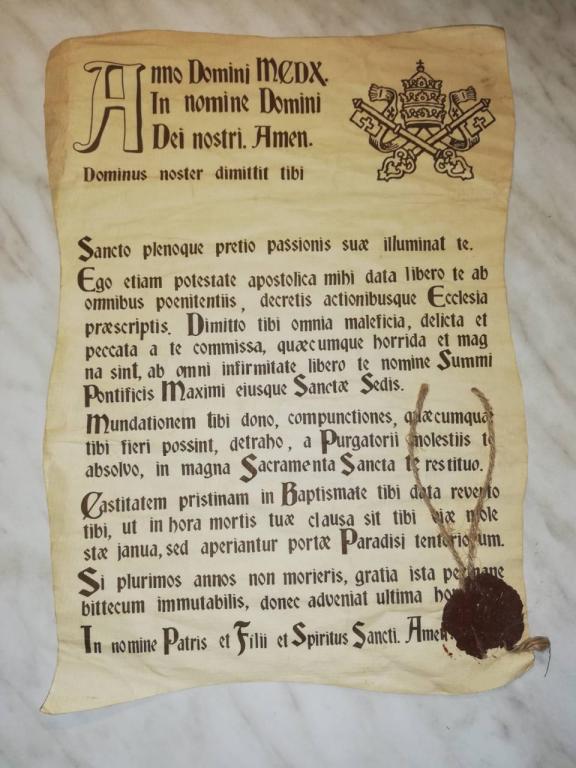 Anno Domini MCDX.
In nomine Domini
Dei nostri. Amen.
Dominus noster dimittit tibi
Sancto plenoque pretio passionis suæ illuminat te.
Ego etiam potestate apostolica mihi data libero te ab
omnibus poenitentiis, decretis actionibusque Ecclesia
præscriptis. Dimitto tibi omnia maleficia, delicta et
peccata a te commissa, quæcumque horrida et mag
na sint, ab omni infirmitate libero te nomine Summi
Pontificis Maximi eiusque Sanctæ Sedis.
Mundationem tibi dono, compunctiones, quæcumquæ
tibi fieri possint, detraho, a Purgatorii molestiis te
absolvo, in magna Sacramenta Sancta te restituo.
Castitatem pristinam in Baptismate tibi data revento
tibi, ut in hora mortis tuæ clausa sit tibi viæ mole
stæ janua, sed aperiantur portæ Paradisi tentoriorum.
Si plurimos annos non morieris, gratia ista permane
bittecum immutabilis, donec adveniat ultima
In nomine Patris et Filii et Spiritus Sancti. Amen.